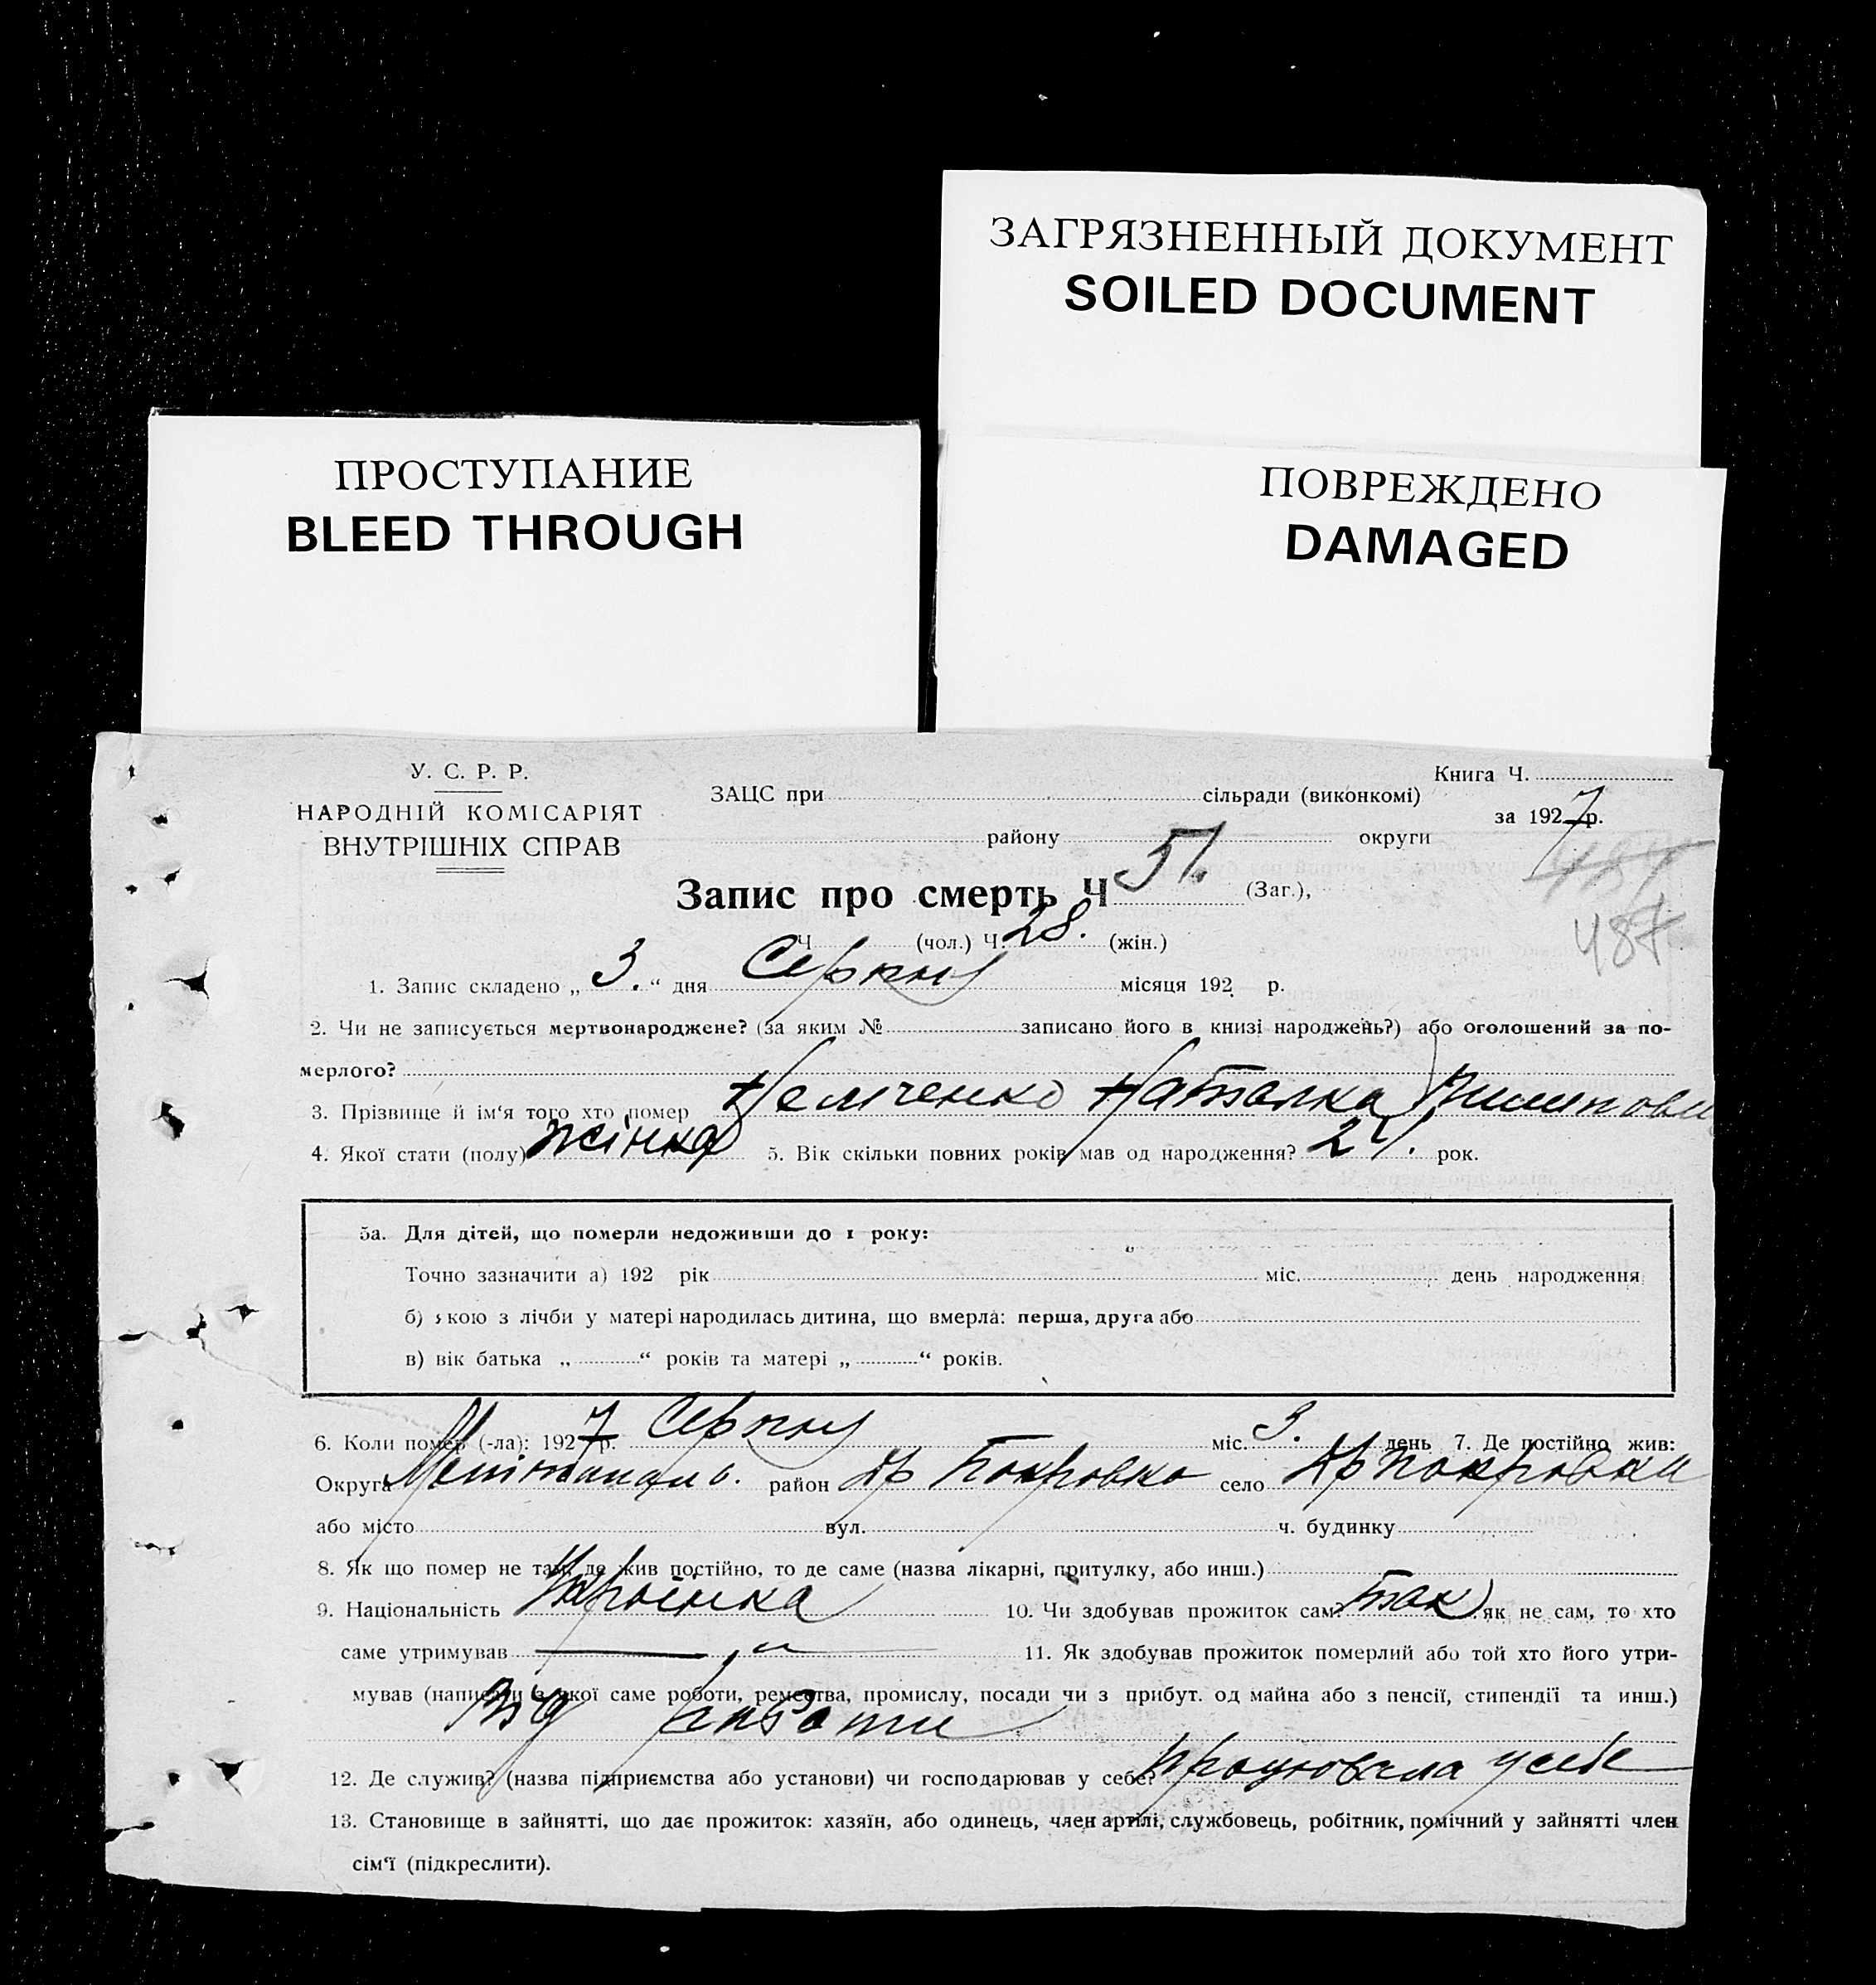 ЗАГРЯЗНЕННЫЙ ДОКУМЕНТ
SOILED DOCUMENT
ПРОСТУПАНИЕ
BLEED THROUGH
ПОВРЕЖДЕНО
DAMAGED
У. С. Р. Р.
НАРОДНІЙ КОМІСАРІЯТ
ВНУТРІШНІХ СПРАВ
Книга Ч.
ЗАЦС при сільради (виконкомі)
за 1927 р.
району округи
Запис про смерть Ч 51. (Заг.),
487
Ч (чол.) Ч. 28. (жін.)
487
1. Запис складено „ 3. “ дня Серпня місяця 192 р.
2. Чи не записується мертвонароджене? (за яким № записано його в книзі народжень?) або оголошений за по-
мерлого?
3. Прізвище й ім'я того хто помер Немченко Наталка
4. Якої стати (полу) жінка 5. Вік скільки повних років мав од народження? 21. рок.
5а. Для дітей, що померли недоживши до 1 року:
Точно зазначити а) 192 рік міс. день народження
б) якою з лічби у матері народилась дитина, що вмерла: перша, друга або
в) вік батька „ “ років та матері „ “ років.
6. Коли помер (-ла): 1927 р. Серпня міс. 3. день 7. Де постійно жив:
Округа район Покровка село
або місто вул. ч. будинку
8. Як що помер не там, де жив постійно, то де саме (назва лікарні, притулку, або инш.)
9. Національність Українка 10. Чи здобував прожиток сам? так як не сам, то хто
саме утримував 11. Як здобував прожиток померлий або той хто його утри-
мував (написати з якої саме роботи, ремества, промислу, посади чи з прибут. од майна або з пенсії, стипендії та инш.)
Від работи
12. Де служив? (назва підприємства або установи) чи господарював у себе? працювала у себе
13. Становище в зайнятті, що дає прожиток: хазяїн, або одинець, член артілі, службовець, робітник, помічний у зайнятті член
сім'ї (підкреслити).